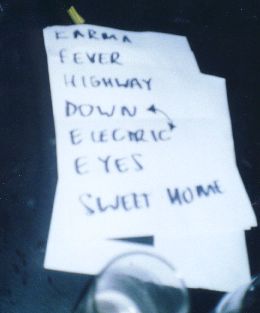 KARMA
FEVER
HIGHWAY
DOWN
ELECTRIC
EYES
SWEET HOME